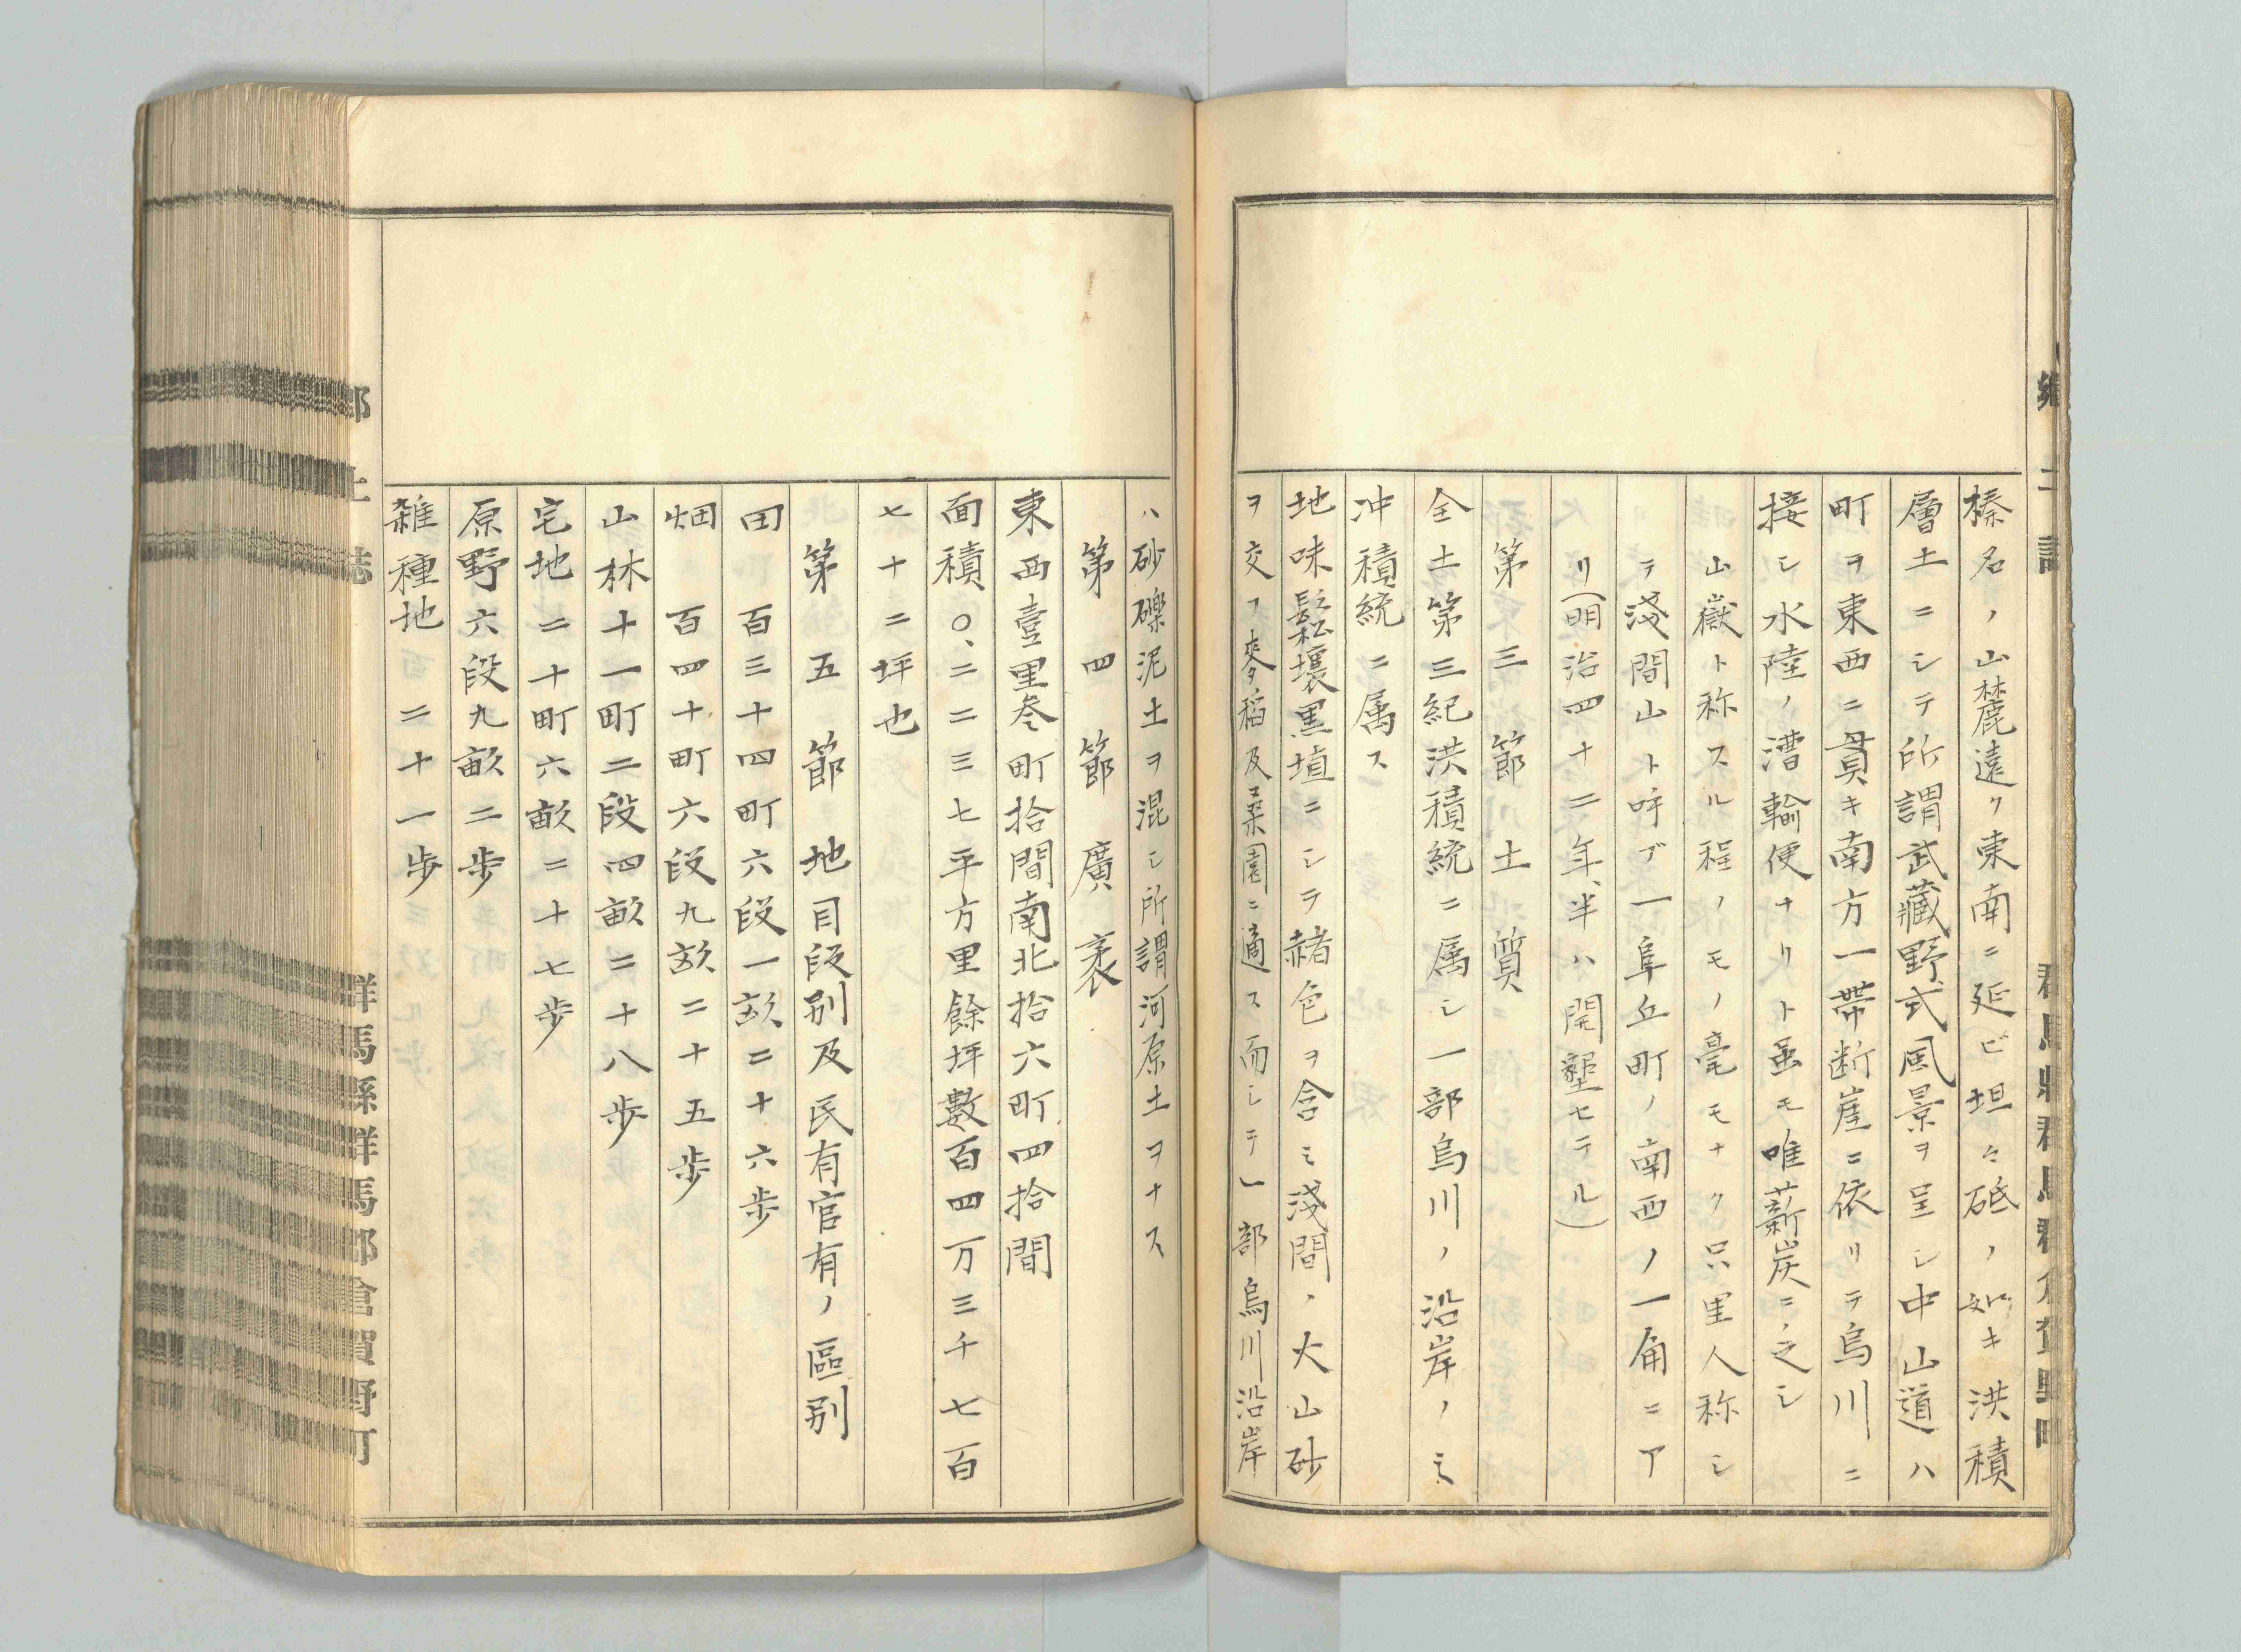 榛名ノ山麓遠ク東南ニ延ビ坦々砥ノ如キ洪積
層土ニシテ所謂武藏野式風景ヲ呈シ中山道ハ
町ヲ東西ニ貫キ南方一帶断崖ニ依リテ烏川ニ
接シ水陸ノ漕輸便ナリト虽モ唯薪炭ニ之シ
山嶽ト称スル程ノモノ毫モナク只里人称シ
テ淺間山ト呼ブ一阜丘町ノ南西ノ一角ニア
リ(明治四十二年、半ハ開墾セテル)
第三節 土質
全土第三紀洪積統ニ属シ一部烏川ノ沿岸ノミ
冲積統ニ属ス
地味鬆壤黒埴ニシテ赭色ヲ含ミ淺間ノ火山砂
ヲ交フ麥稻及桑園ニ適ス而シテ一部烏川沿岸
ハ砂礫泥土ヲ混シ所謂河原土ヲナス
第四節 廣袤
東西壹里叄町拾間南北拾六町四拾間
面積〇、二二三七平方里餘坪數百四万三千七百
七十二坪也
第五節 地目段别及民有官有ノ區别
田 百三十四町六段一畝二十六歩
畑 百四十町六段九畝二十五歩
山林十一町二段四畝二十八歩
宅地二十町六畝二十七歩
原野六段九畝二歩
雑種地 二十一歩
郷土誌 群馬縣群馬郡倉賀野町